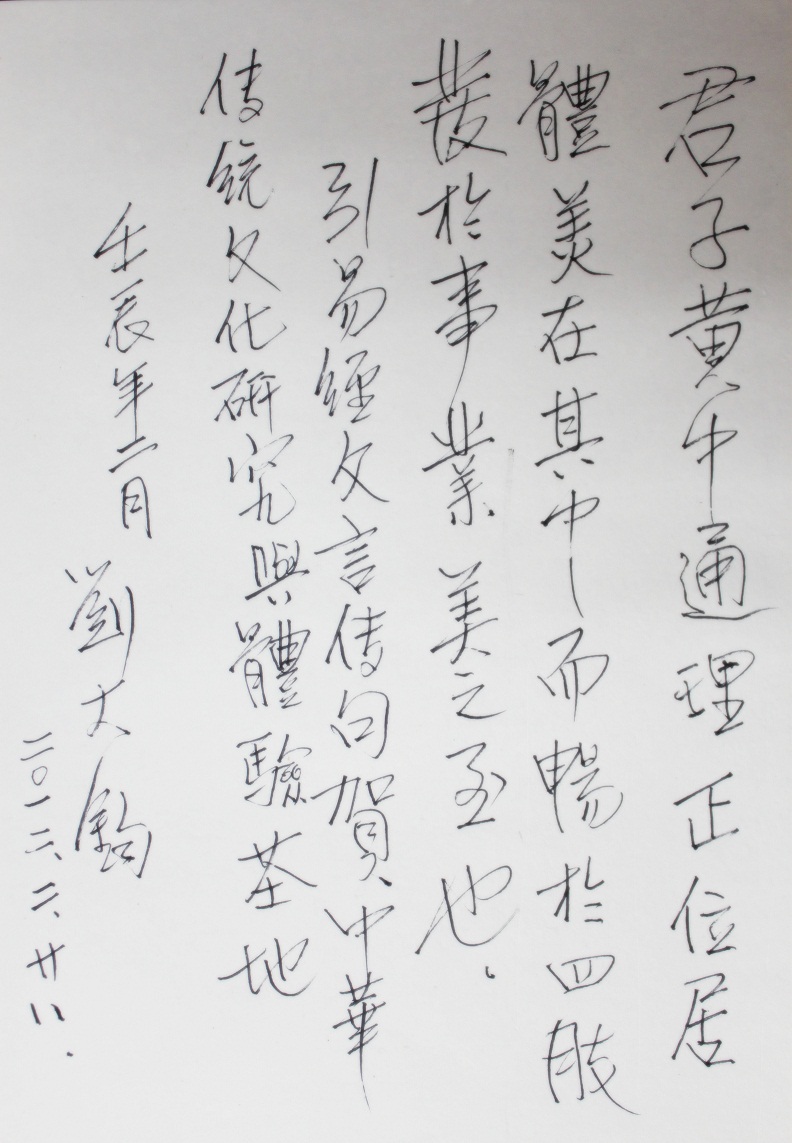 君子黄中通理正位居
體美在其中而暢於四肢
發於事業美之至也。
引易經文言传句賀中華
传統文化研究與體驗基地
壬辰年二月 劉大鈞
二〇一二、二、廿八.